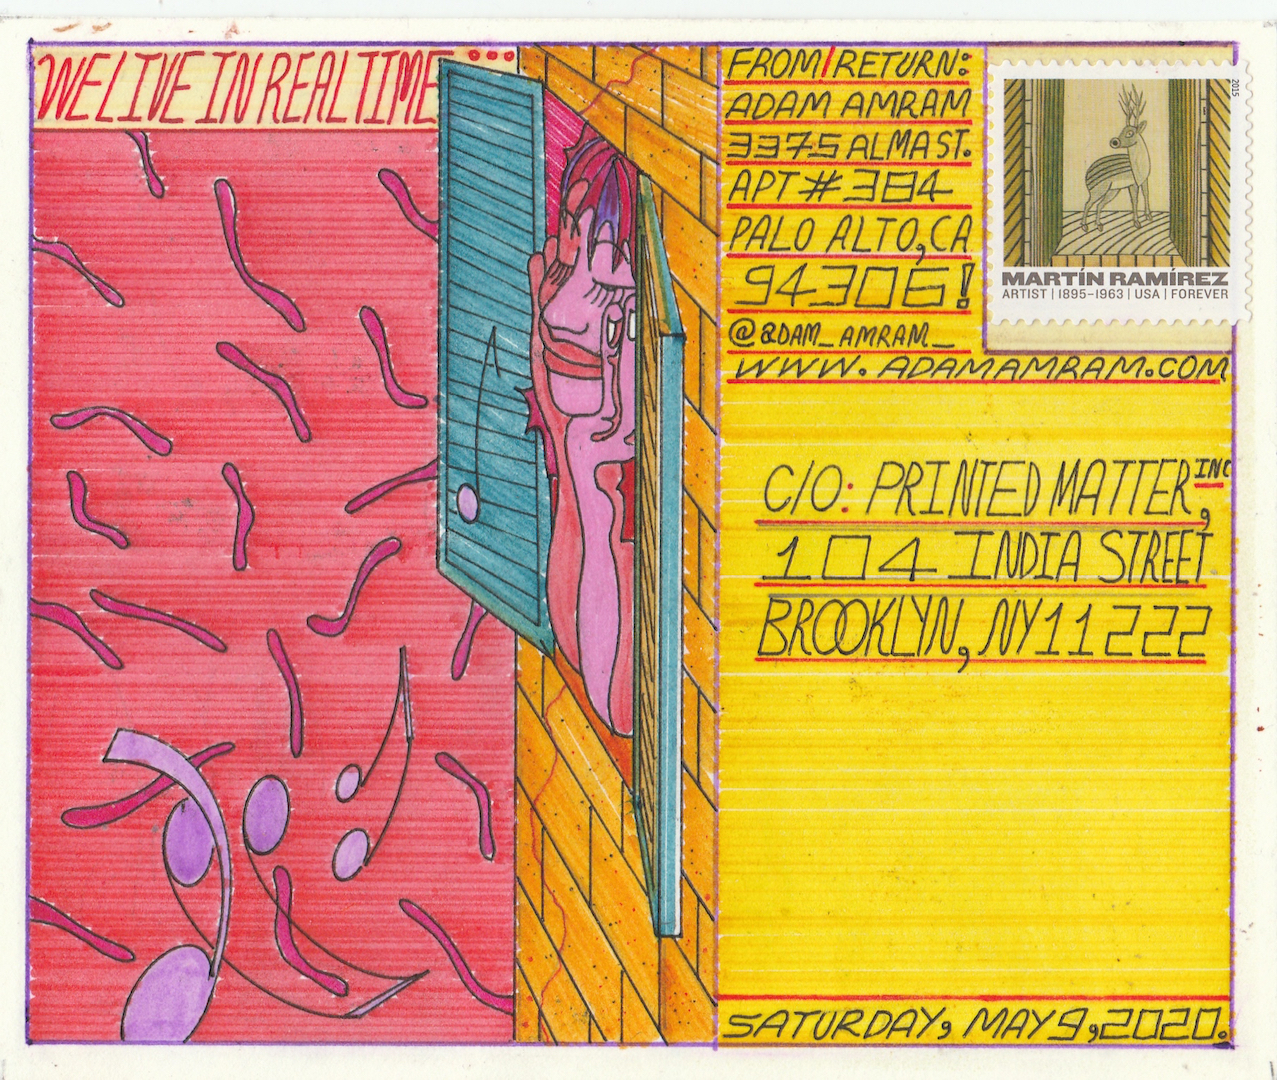 WE LIVE IN REAL TIME...
FROM/RETURN:
ADAM AMRAM
3375 ALMA ST.
APT #384
PALO ALTO, CA
94306!
@ADAM_AMRAM_
WWW.ADAMAMRAM.COM
2015
MARTÍN RAMÍREZ
ARTIST | 1895–1963 | USA | FOREVER
C/O: PRINTED MATTER, INC
104 INDIA STREET
BROOKLYN, NY 11222
SATURDAY, MAY 9, 2020.